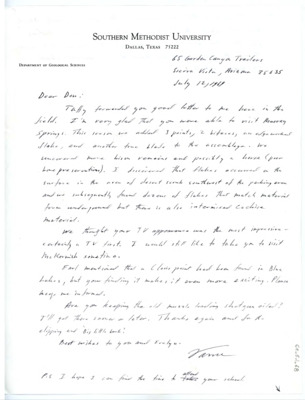 SOUTHERN METHODIST UNIVERSITY
DALLAS, TEXAS 75222
DEPARTMENT OF GEOLOGICAL SCIENCES
65 Garden Canyon Trailers
Sierra Vista, Arizona 85635
July 12,
Dear Don:
Taffy forwarded your good letter to me here in the
field. I'm very glad that you were able to visit Murray
Springs. This season we added 3 points, 2 bifaces, an
flake, and another tool to the assemblage. We
uncovered more bison remains and possibly a horse (poor
bone preservation). I discovered that flakes occurred on the
surface in the area of desert scrub southwest of the parking area
and we subsequently found dozens of flakes that match material
from underground but there is also intermixed Cochise
material.
We thought your TV appearance was the most impressive
certainly a TV first. I would still like to take you to visit
sometime.
Earl mentioned that a Clovis point had been found in Blue
Lakes, but your finding it makes it even more exciting. Please
keep me informed.
Are you keeping the old muzzle loading shotgun oiled?
I'll get there sooner or later. Thanks again and for the
clipping and
Best wishes to you and Evelyn.
Vance
P.S. I hope I can find the time to attend your school